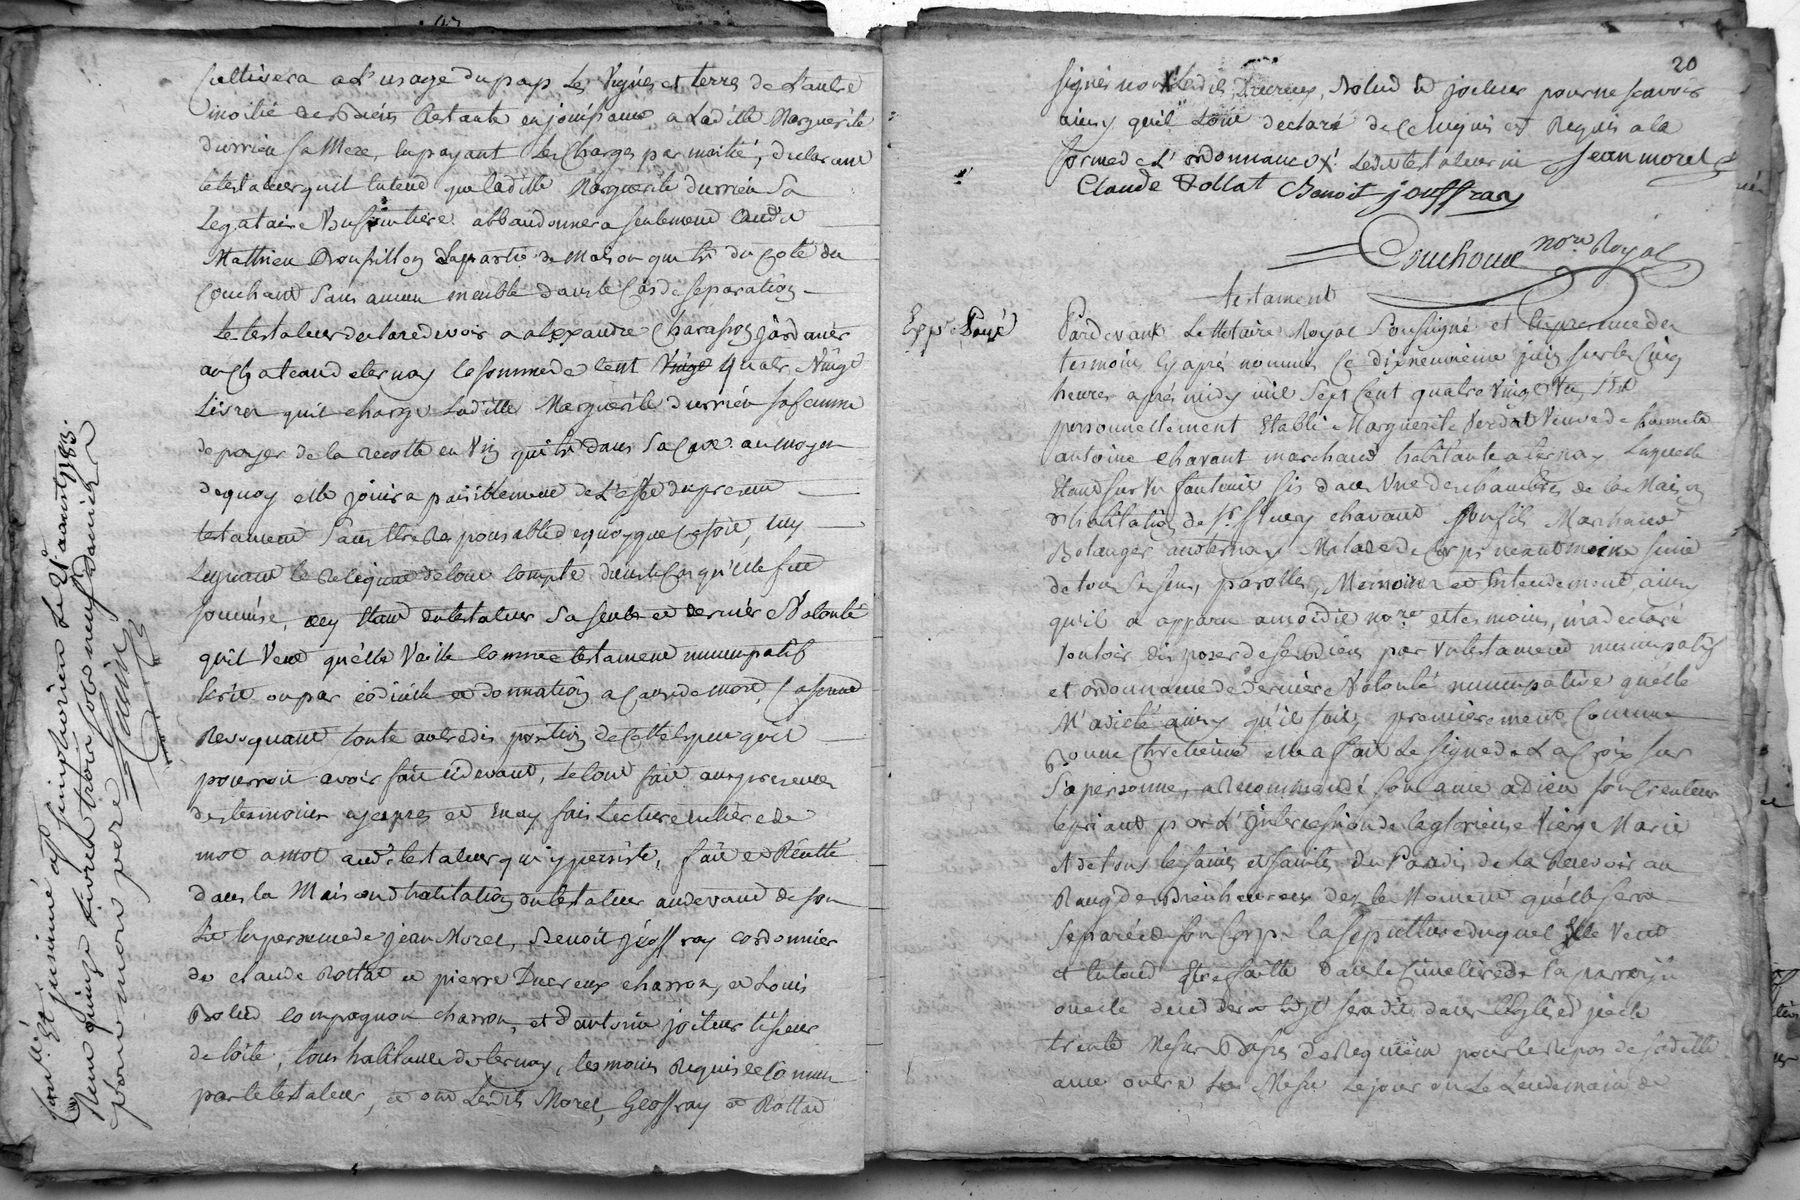 Cultivera a L'usage du pays Les Vignes et terres de L'autre
moitié de ses Biens Restante en jouissance a Ladille Marguerite
Durrieu sa Mere, en payant Les Charges par moitié, declarant
le testateur quil Entend que ladille Marguerite durrieu Sa
Legataire Usufruitiere abbandonnera seulement audit
Mathieu Roussillon la partie de Maison qui Est du Coté du
Couchant Sans aucun meuble dans le Cas de separation
Le testateur declare devoir a alexandre Charasson jardinier
au Chateau de ternay la somme de Cent Vingt quatre Vingt
Livres quil charge Ladille Marguerite durrieu sa femme
de payer de la recolte en Vin qui Est dans Sa Cave au moyen
dequoy elle jouira paisiblement de L'effet du present
testament Sans Etre Responsable de quoy que Ce soit, luy
Leguant le Reliquat de tout Compte dans le Cas qu'Elle fut
soumise, cecy Etant du testateur Sa seule et derniere Volonté
quil Veut qu'elle Vaille comme testament nuncupatif
Ecrit ou par codicille et donnation a Cause de mort, Cassant
Revoquant toute autre disposition de Cette Espece qu'il
pourroit avoir fait cidevant, Le tout fait aux presences
des temoins apres et En ay fait Lecture entiere de
mot a mot audt testateur qui y persiste, fait et Récitté
dans la Maison d'habitation du testateur au devant de son
Lit En presence de jean Morel, Benoit jéoffray cordonnier
de claude Rollat et pierre Ducreux charron, et Louis
Bolud compagnon charron, et d'antoine jocteur tisseur
de toile, tous habitants de ternay, temoins Requis et Connus
par le testateur, et ont Lesdits Morel, Geoffray et Rollat
Con.lé Et insinué a St simphorien Le 21 aoust 1783.
Reçu quinze livres trois sols neuf deniers
pour mon pere
20
signés non Lesdits Ducreux, Bolud et jocteur pour ne scavoir
ainsy quils L'ont declaré de Ce Enquis et Requis a la
forme de L'ordonnance X. Ledit testateur ni Jean morel
Claude Rollat Benoit jouffray
Couchoud nore Royal
testament
Expé Payé
Pardevant Le Notaire Royal Soussigné et En presence des
temoins Cy aprés nommés Ce dixneuvieme juin sur les Cinq
heures aprés midy mil Sept Cent quatre Vingt Un fut
personnellement Etablie Marguerite Verdal Veuve de honnete
antoine Chavant marchand habitante a ternay Laquelle
Etant sur Un fauteuil sis dans Une des chambres de la Maison
d'habitation de Sr. chavant son fils Marchand
Bolanger audt ternay Malade de Corps neantmoins saine
de tous Ses sens, parolles, Memoire et Entendement, ainsy
qu'il a apparu a moi dit nore. et temoins, m'a declaré
Vouloir disposer de ses Biens par Un testament nuncupatif
et ordonnance de Derniere Volonté nuncupative qu'elle
M'a dicté ainsy qu'il suit, premierement Comme
Bonne Chretienne elle a fait Le signe de La Croix sur
Sa personne, a Recommandé son ame a Dieu son Createur
le priant par L'Intercession de la glorieuse Vierge Marie
et de tous les saints et saintes du Paradis de La Recevoir au
Rang des Bienheureux des le Moment qu'elle sera
Separée de son Corps la sepulture duquel Elle Veut
et Entend Etre faitte dans le Cimetiere de la parroisse
ou elle decedera Et qu'il sera dit dans L'Eglise d'jcelle
trente Messes Basses de Requiem pour le Repos de sa ditte
ame outre La Messe Le jour ou Le Lendemain de